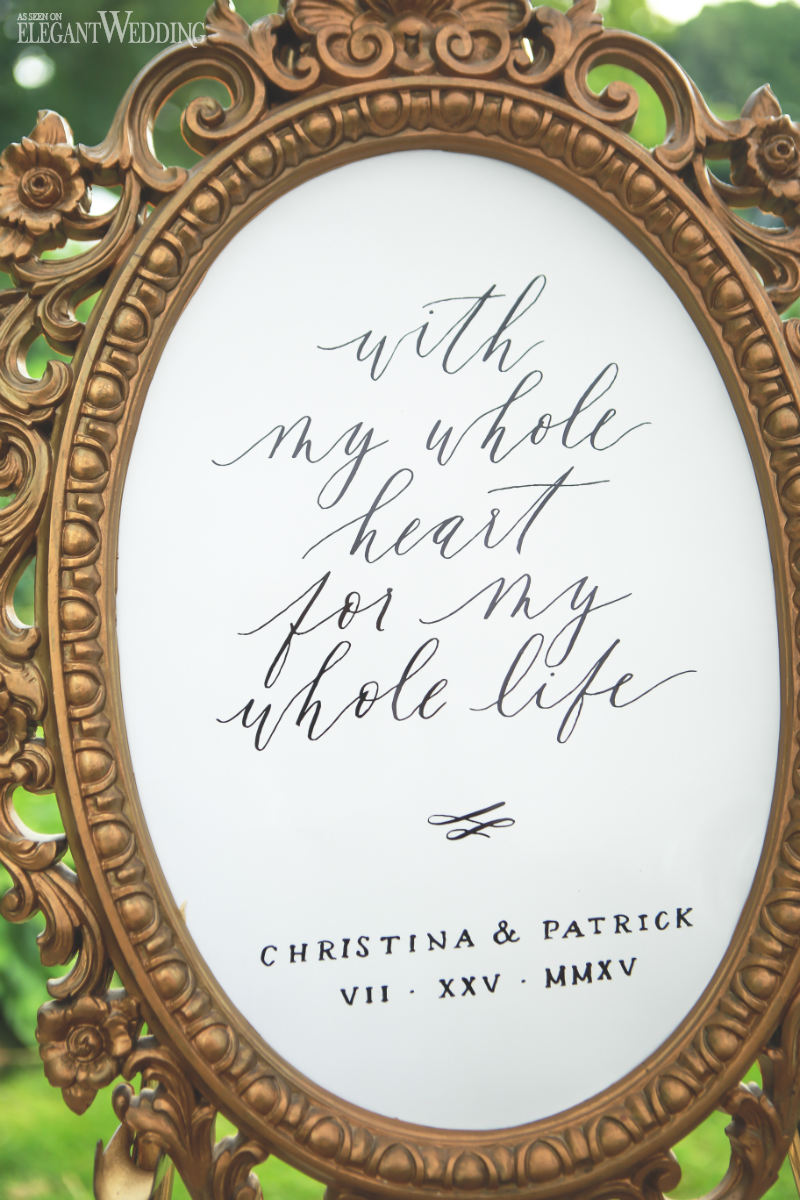 AS SEEN ON
ELEGANTWEDDING
with
my whole
heart
for my
whole life
CHRISTINA & PATRICK
VII · XXV · MMXV